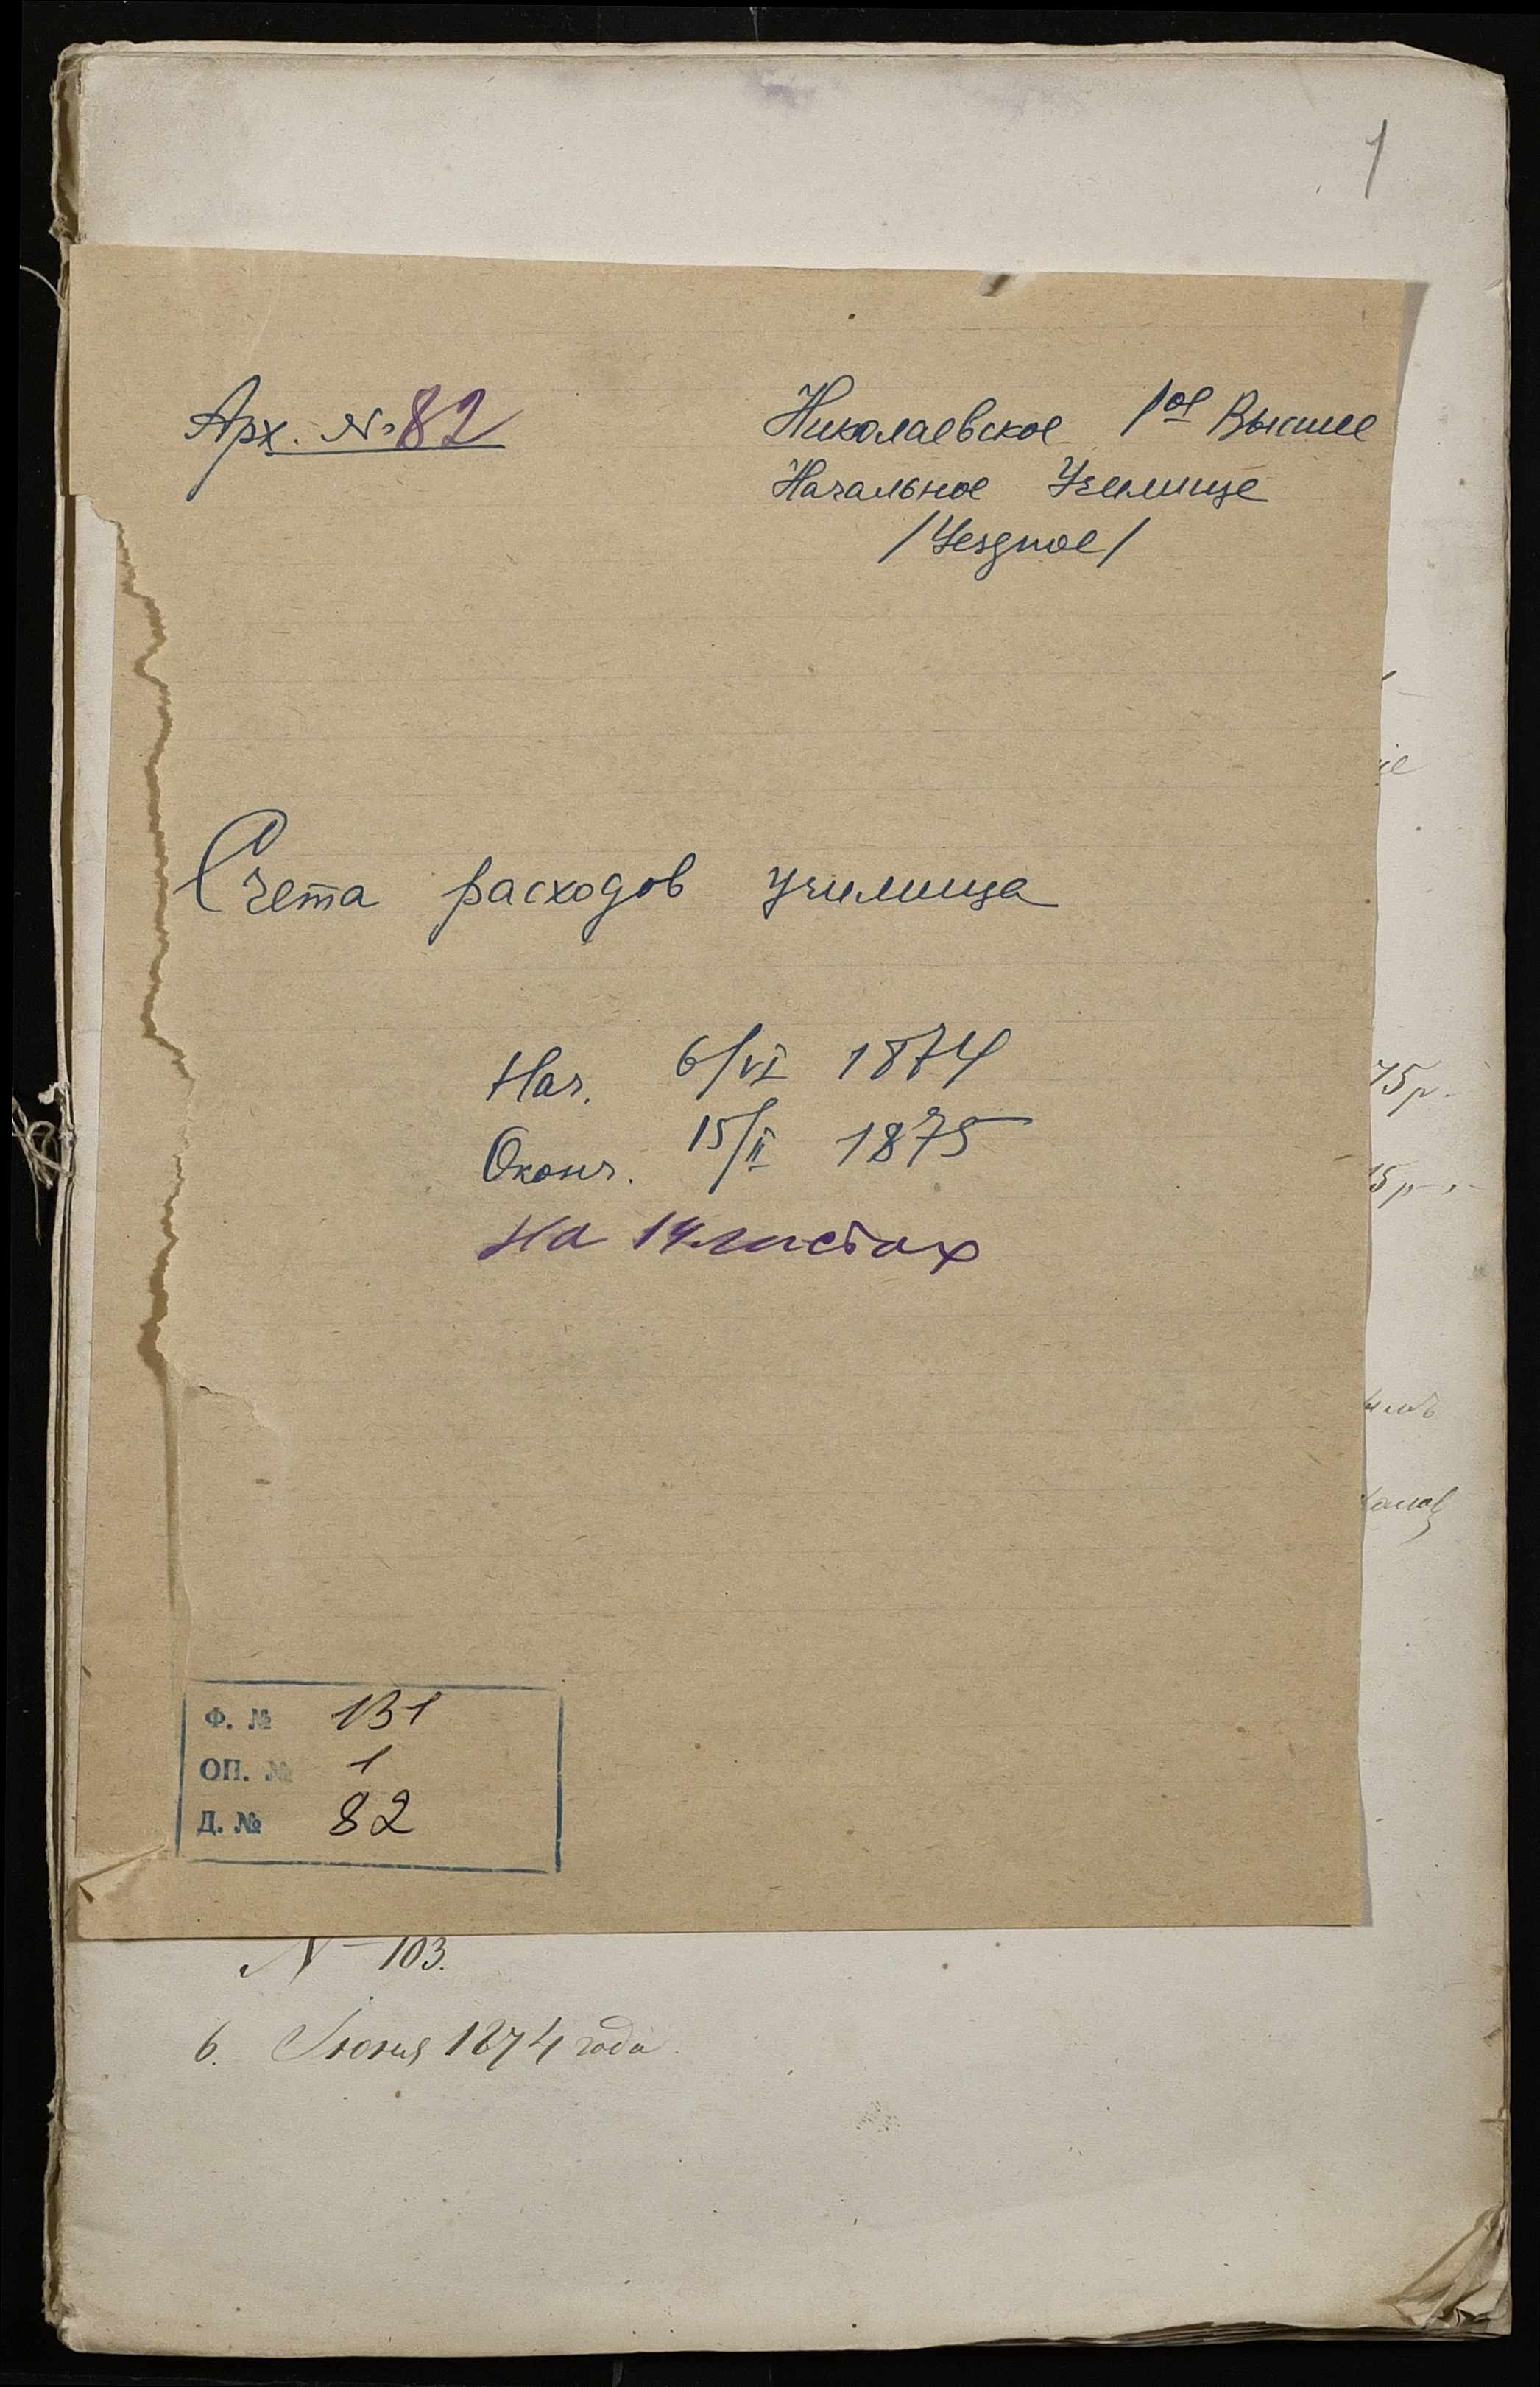 1
Арх. № 82
Николаевское 1ое Высшее
Начальное Училище
/Уездное/
Счета расходов училища
Нач. 6/VI 1874
Оконч. 15/II 1875
На 14 листах
75 р.
15 р
Ф. № 131
ОП. № 1
Д. № 82
N 103.
6. Июня 1874 года.